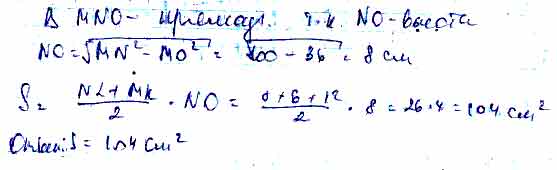 Δ MNO - прямоуг. т.к. NO - высота
NO = √MN² - MO² = √100 - 36 = 8 см
S = NL + MK / 2 · NO = 8 + 6 + 12 / 2 · 8 = 26 · 4 = 104 см²
Ответ: S = 104 см²